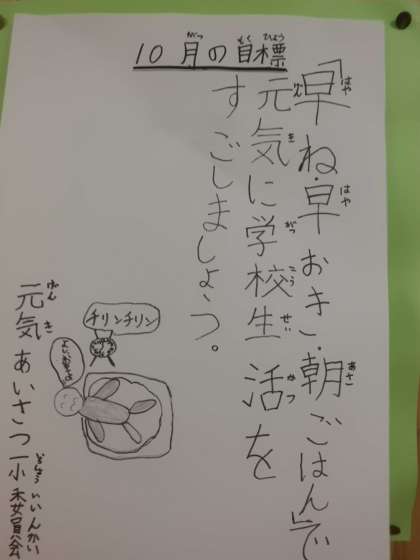 10月の目標
「早ね・早おき・朝ごはん」で
元気に学校生活を
すごしましょう。
チリンチリン
元気あいさつ一小委員会